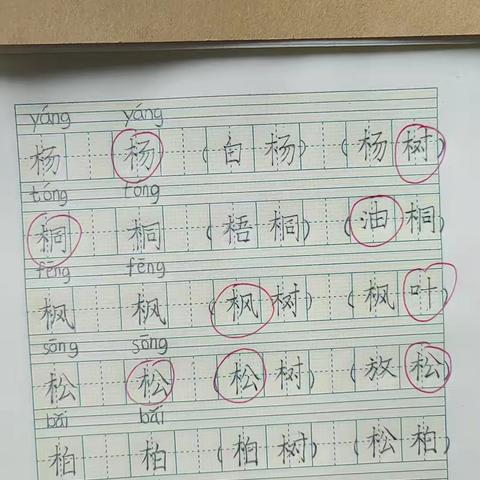 yáng yáng
杨 杨 (白杨) (杨树)
tóng tóng
桐 桐 (梧桐) (油桐)
fēng fēng
枫 枫 (枫树) (枫叶)
sōng sōng
松 松 (松树) (放松)
bǎi bǎi
柏 柏 (柏树) (松柏)